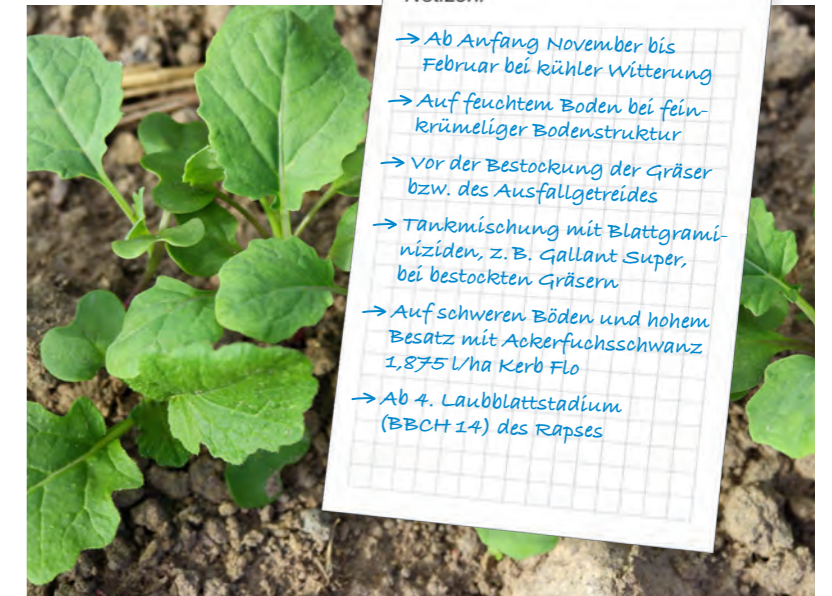 Notizen:
→ Ab Anfang November bis
Februar bei kühler Witterung
→ Auf feuchtem Boden bei fein-
krümeliger Bodenstruktur
→ Vor der Bestockung der Gräser
bzw. des Ausfallgetreides
→ Tankmischung mit Blattgrami-
niziden, z. B. Gallant Super,
bei bestockten Gräsern
→ Auf schweren Böden und hohem
Besatz mit Ackerfuchsschwanz
1,875 l/ha Kerb Flo
→ Ab 4. Laubblattstadium
(BBCH 14) des Rapses